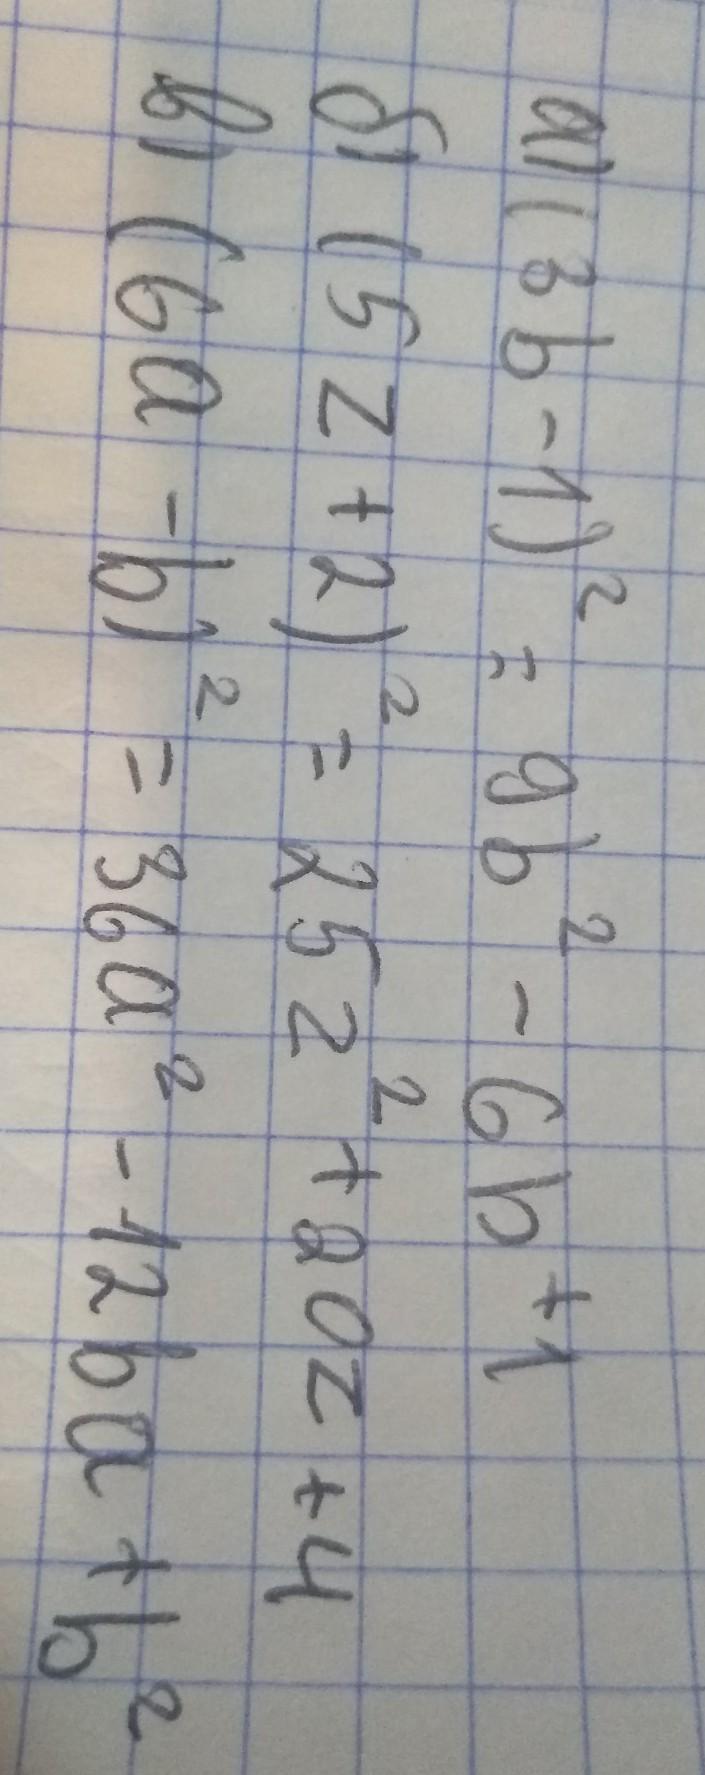 а) (3b-1)² = 9b² - 6b+1
б) (5z+2)² = 25z² +20z+4
в) (6a-b)² = 36a² - 12ba+b²